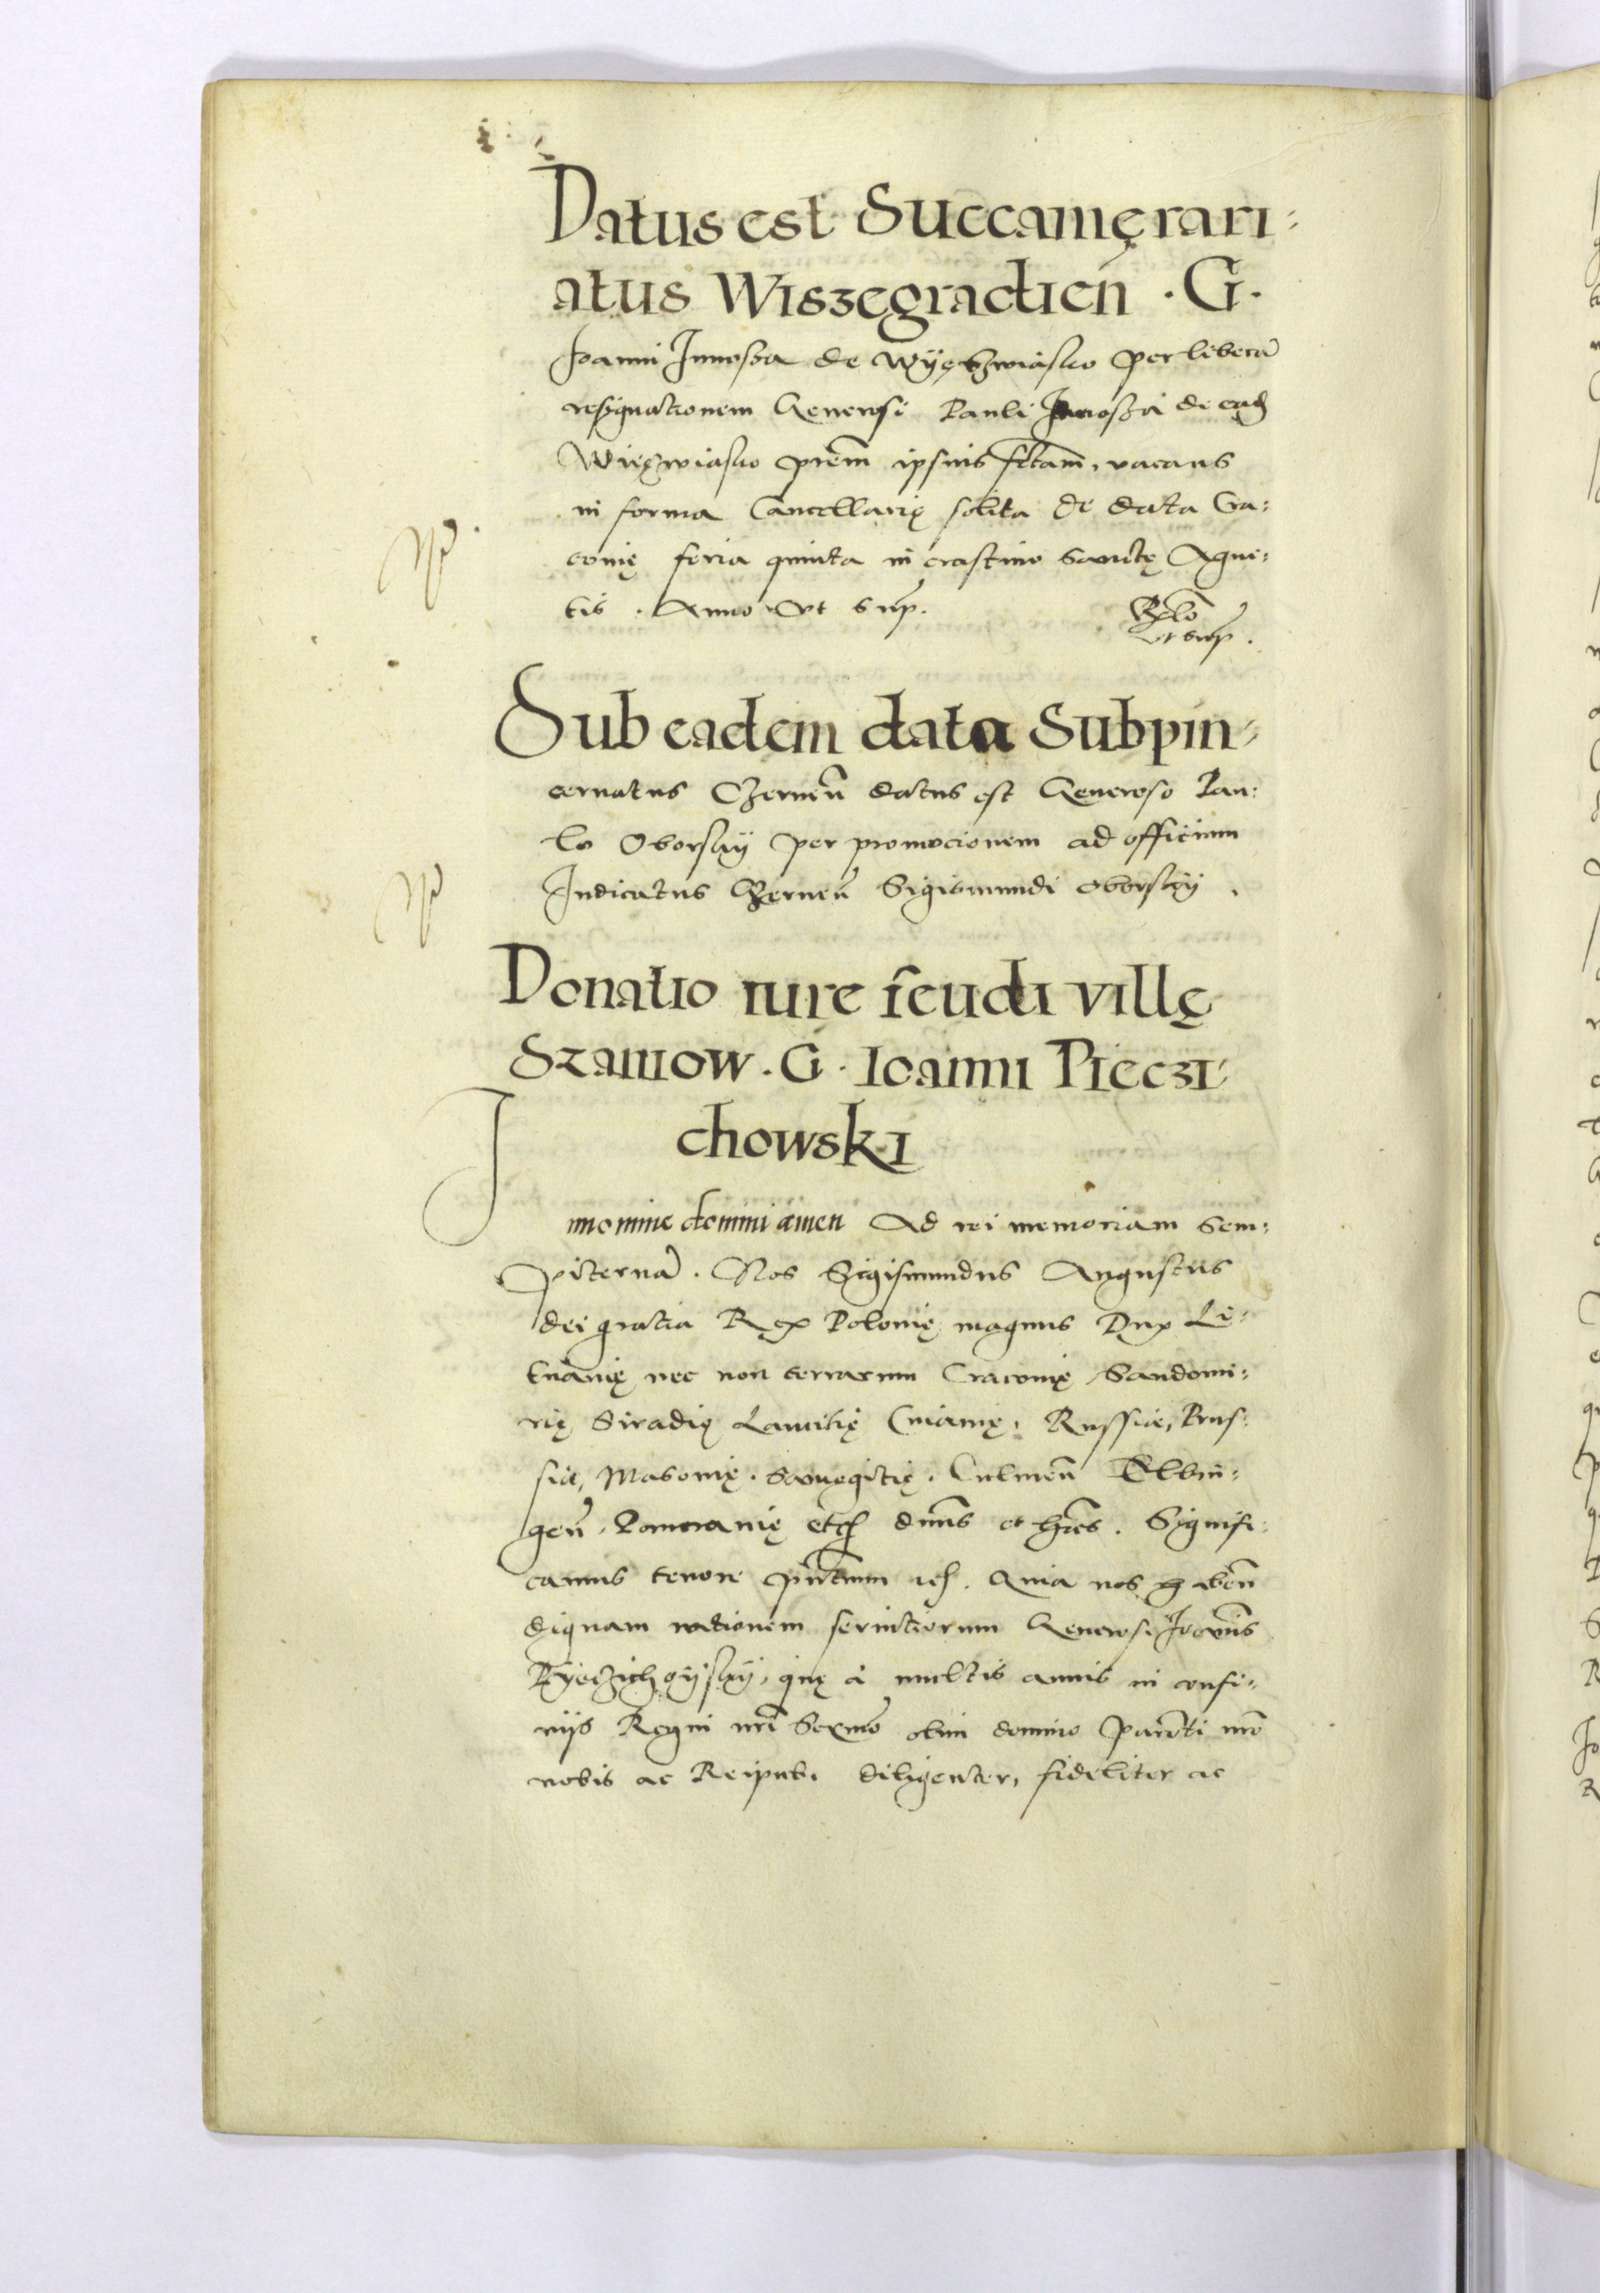 Datus est Succamęrari-
atus Wiszegradien̄ . G.
Joanni Junosza de Wyęczwiasko per liberā
resignationem Generosi Pauli Junosza de eadē
Więzwiasko prēm ipsius fctam, vacans
in forma Cancellarię solita de data Cra-
couię feria quinta in crastino Sanctę Agne-
tis . Anno Vt sup.
Relō
vt sup .
Sub eadem data Subpin-
cernatus Czernen̄ datus est Generoso Pau-
lo Oborsky per promocionem ad officium
Judicatus Czernen̄ Sigismundi Oborsky .
Donatio iure feudi villę
Szaniow . G . Ioanni Pieczi-
chowski
In nomine domini amen Ad rei memoriam Sem-
piternā . Nos Sigismundus Augustus
dei gratia Rex Polonię magnus Dux Li-
tuanię nec non terrarum Cracouię Sandomi-
rię Siradię Lancitię Cuiauię, Russiae, Prus-
siae, Masouię . Samogitię . Culmen̄ Elbin-
gen̄ . Pomeranię etc dn̄us et hr̄es . Signifi-
camus tenore pn̄tium &c . Quia nos habēn
dignam rationem seruitiorum Generosi Joan̄is
Pyeczichowsky, quę a multis annis in confi-
nijs Regni nr̄i Serᵐᵒ olim domino Parenti nr̄o
nobis ac Reipub. diligenter, fideliter ac